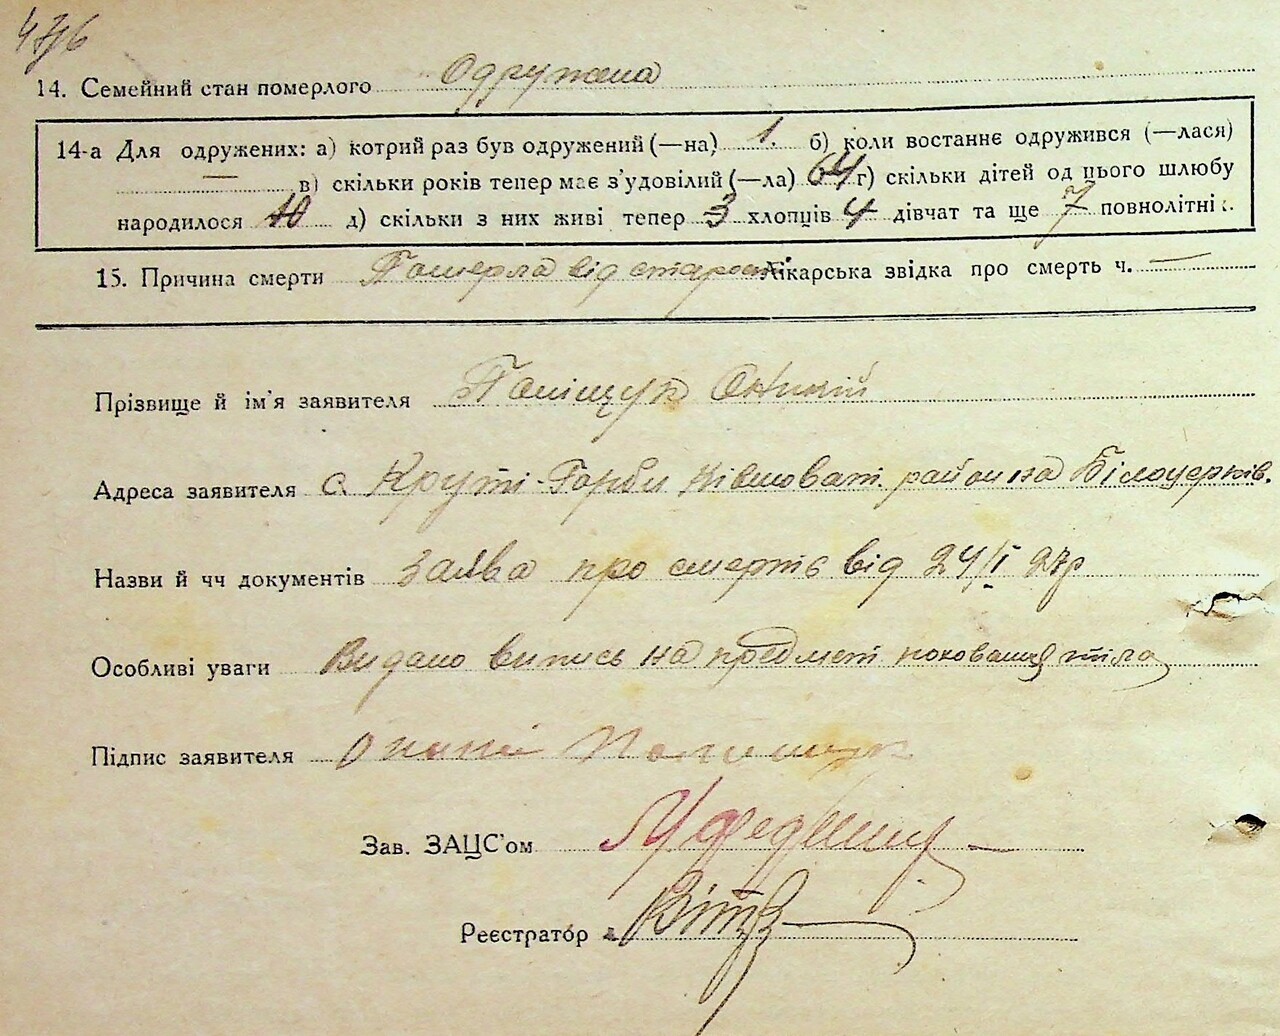 476
14. Семейний стан померлого Одружена
14-а Для одружених: а) котрий раз був одружений (—на) 1. б) коли востаннє одружився (—лася)
— в) скільки років тепер має з'удовілий (—ла) 64 г) скільки дітей од цього шлюбу
народилося 10 д) скільки з них живі тепер 3 хлопців 4 дівчат та ще 7 повнолітні
15. Причина смерти Померла від старости Лікарська звідка про смерть ч. —
Прізвище й ім'я заявителя Поліщук Оникій
Адреса заявителя с. Круті-Горби Ківшоват. района Білоцерків.
Назви й чч документів Заява про смерть від 24/I 27р
Особливі уваги Видано випись на предмет поховання тіла
Підпис заявителя Поліщук
Зав. ЗАЦС'ом
Реєстратор